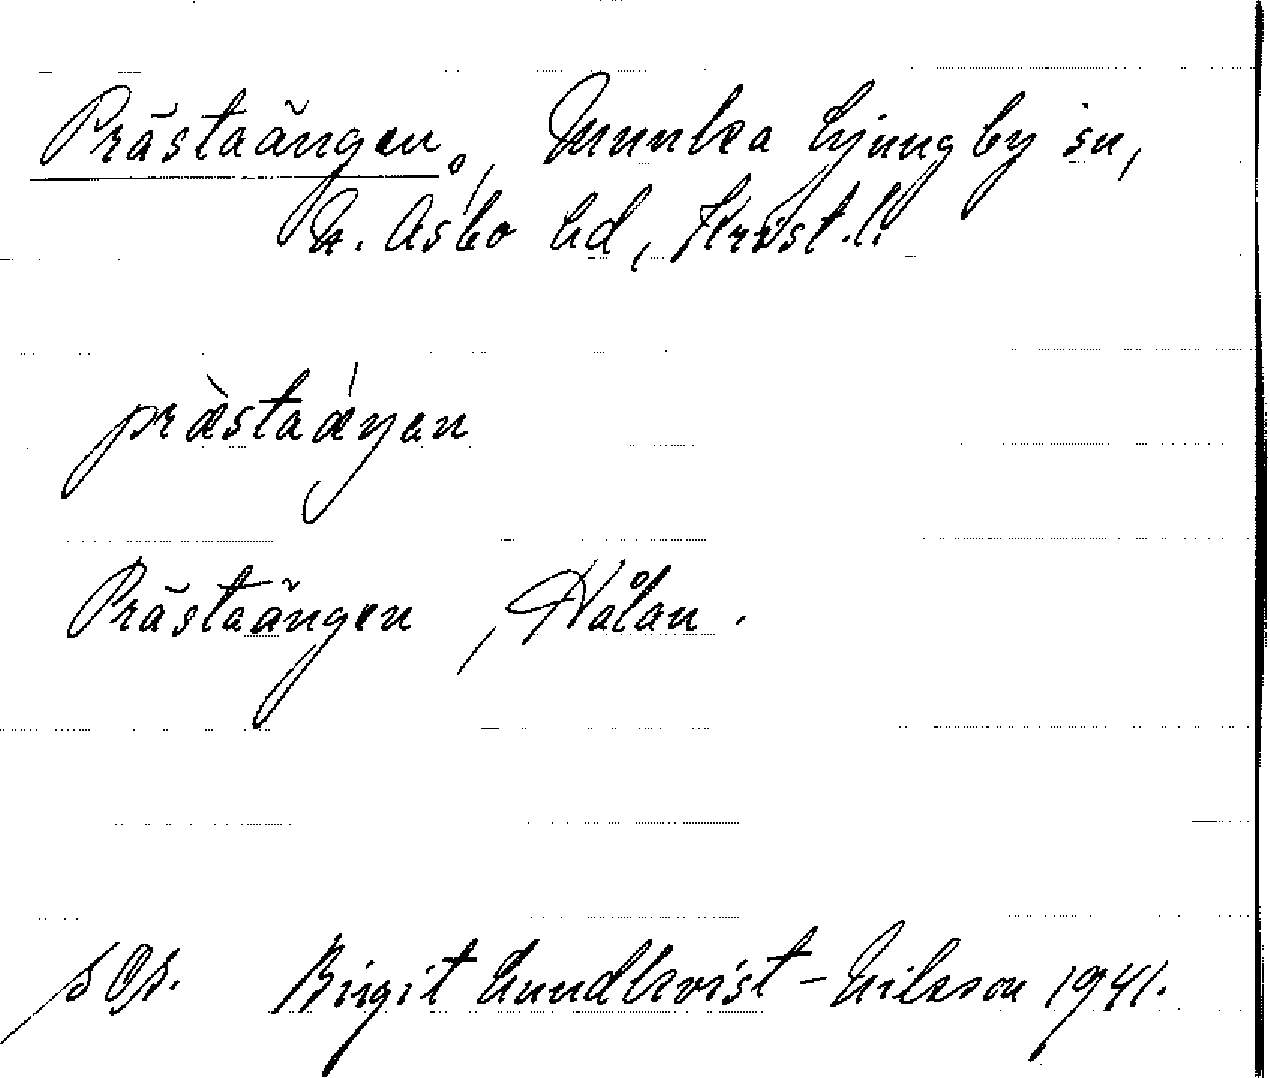 Prästaängen°, Munka Ljungby sn,
N. Åsbo hd, Krist. l.
prästaängen
Prästaängen, Hålan.
Birgit Lundkvist-Nilsson 1941.